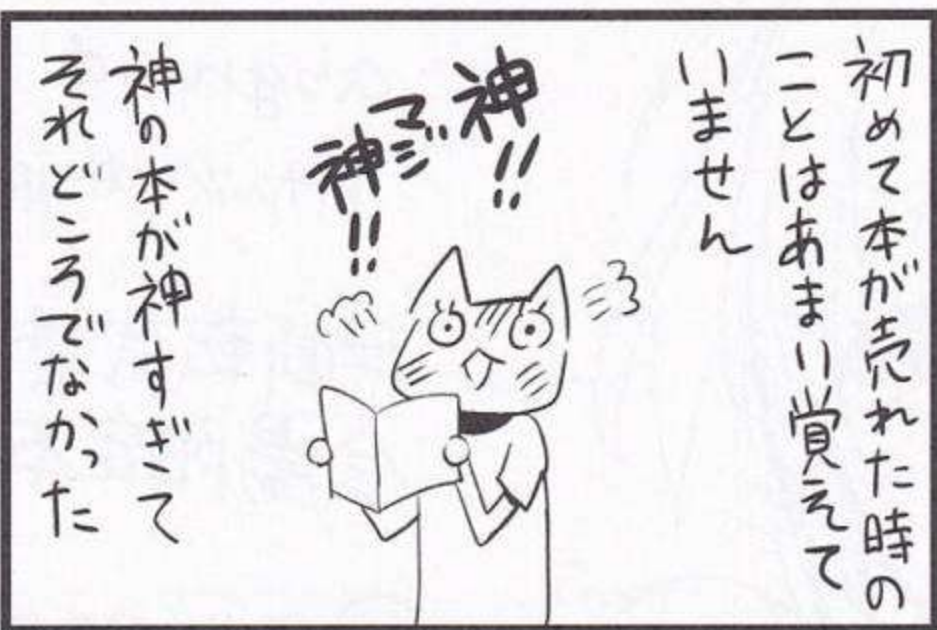 初めて本が売れた時の
ことはあまり覚えて
いません
神!!
マジ
神!!
神の本が神すぎて
それどころでなかった